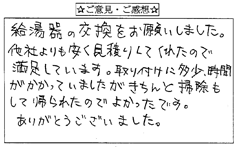 ☆ご意見・ご感想☆
給湯器の交換をお願いしました。
他社よりも安く見積りしてくれたので
満足しています。取り付けに多少、時間
がかかっていましたがきちんと掃除も
して帰られたのでよかったです。
ありがとうございました。